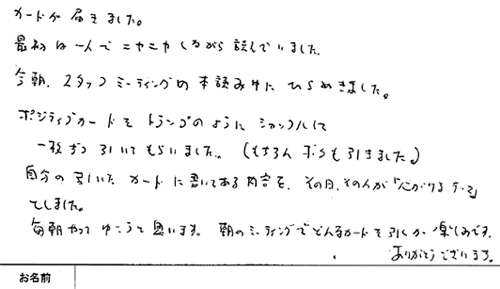 カードが届きました。
最初は一人でニヤニヤしながら読んでいました。
今朝、スタッフミーティングの本読み中にひらめきました。
ポジティブカードをトランプのようにシャッフルして
一枚ずつ引いてもらいました。(もちろんボクも引きました。)
自分の引いたカードに書いてある内容を、その日、その人が「心がけるテーマ」
としました。
毎朝やってゆこうと思います。朝のミーティングでどんなカードを引くか楽しみです。
ありがとうございます。
お名前